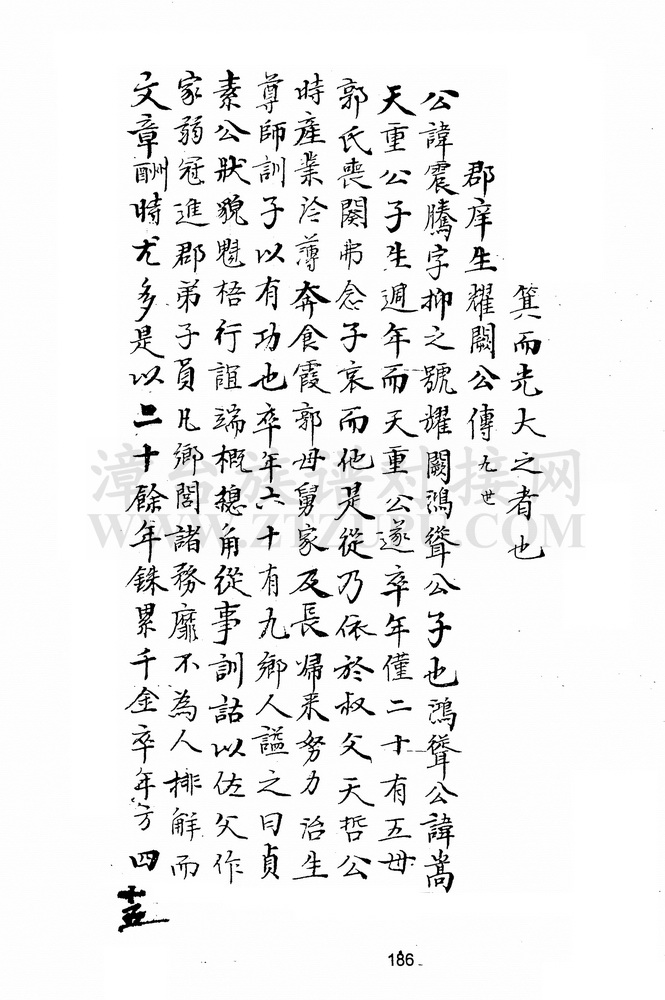 箕而光大之者也
郡庠生耀闕公傳 九世
公諱震騰字抑之號耀闕鴻聳公子也鴻聳公諱嵩
天重公子生週年而天重公遂卒年僅二十有五毋
郭氏喪闋弗念子哀而他是從乃依於叔父天哲公
時產業泠薄奔食霞郭母舅家及長㷌来努力治生
尊師訓子以有功也卒年六十有九鄉人謚之曰貞
素公狀貌魁梧行誼端概總角從事訓詁以佐父作
家弱冠進郡弟子員凡鄉閭諸務靡不為人排解而
文章酬時尤多是以二十餘年銖累千金卒年方四十五
漳台族谱对接网
WWW.ZTZUPU.COM
186